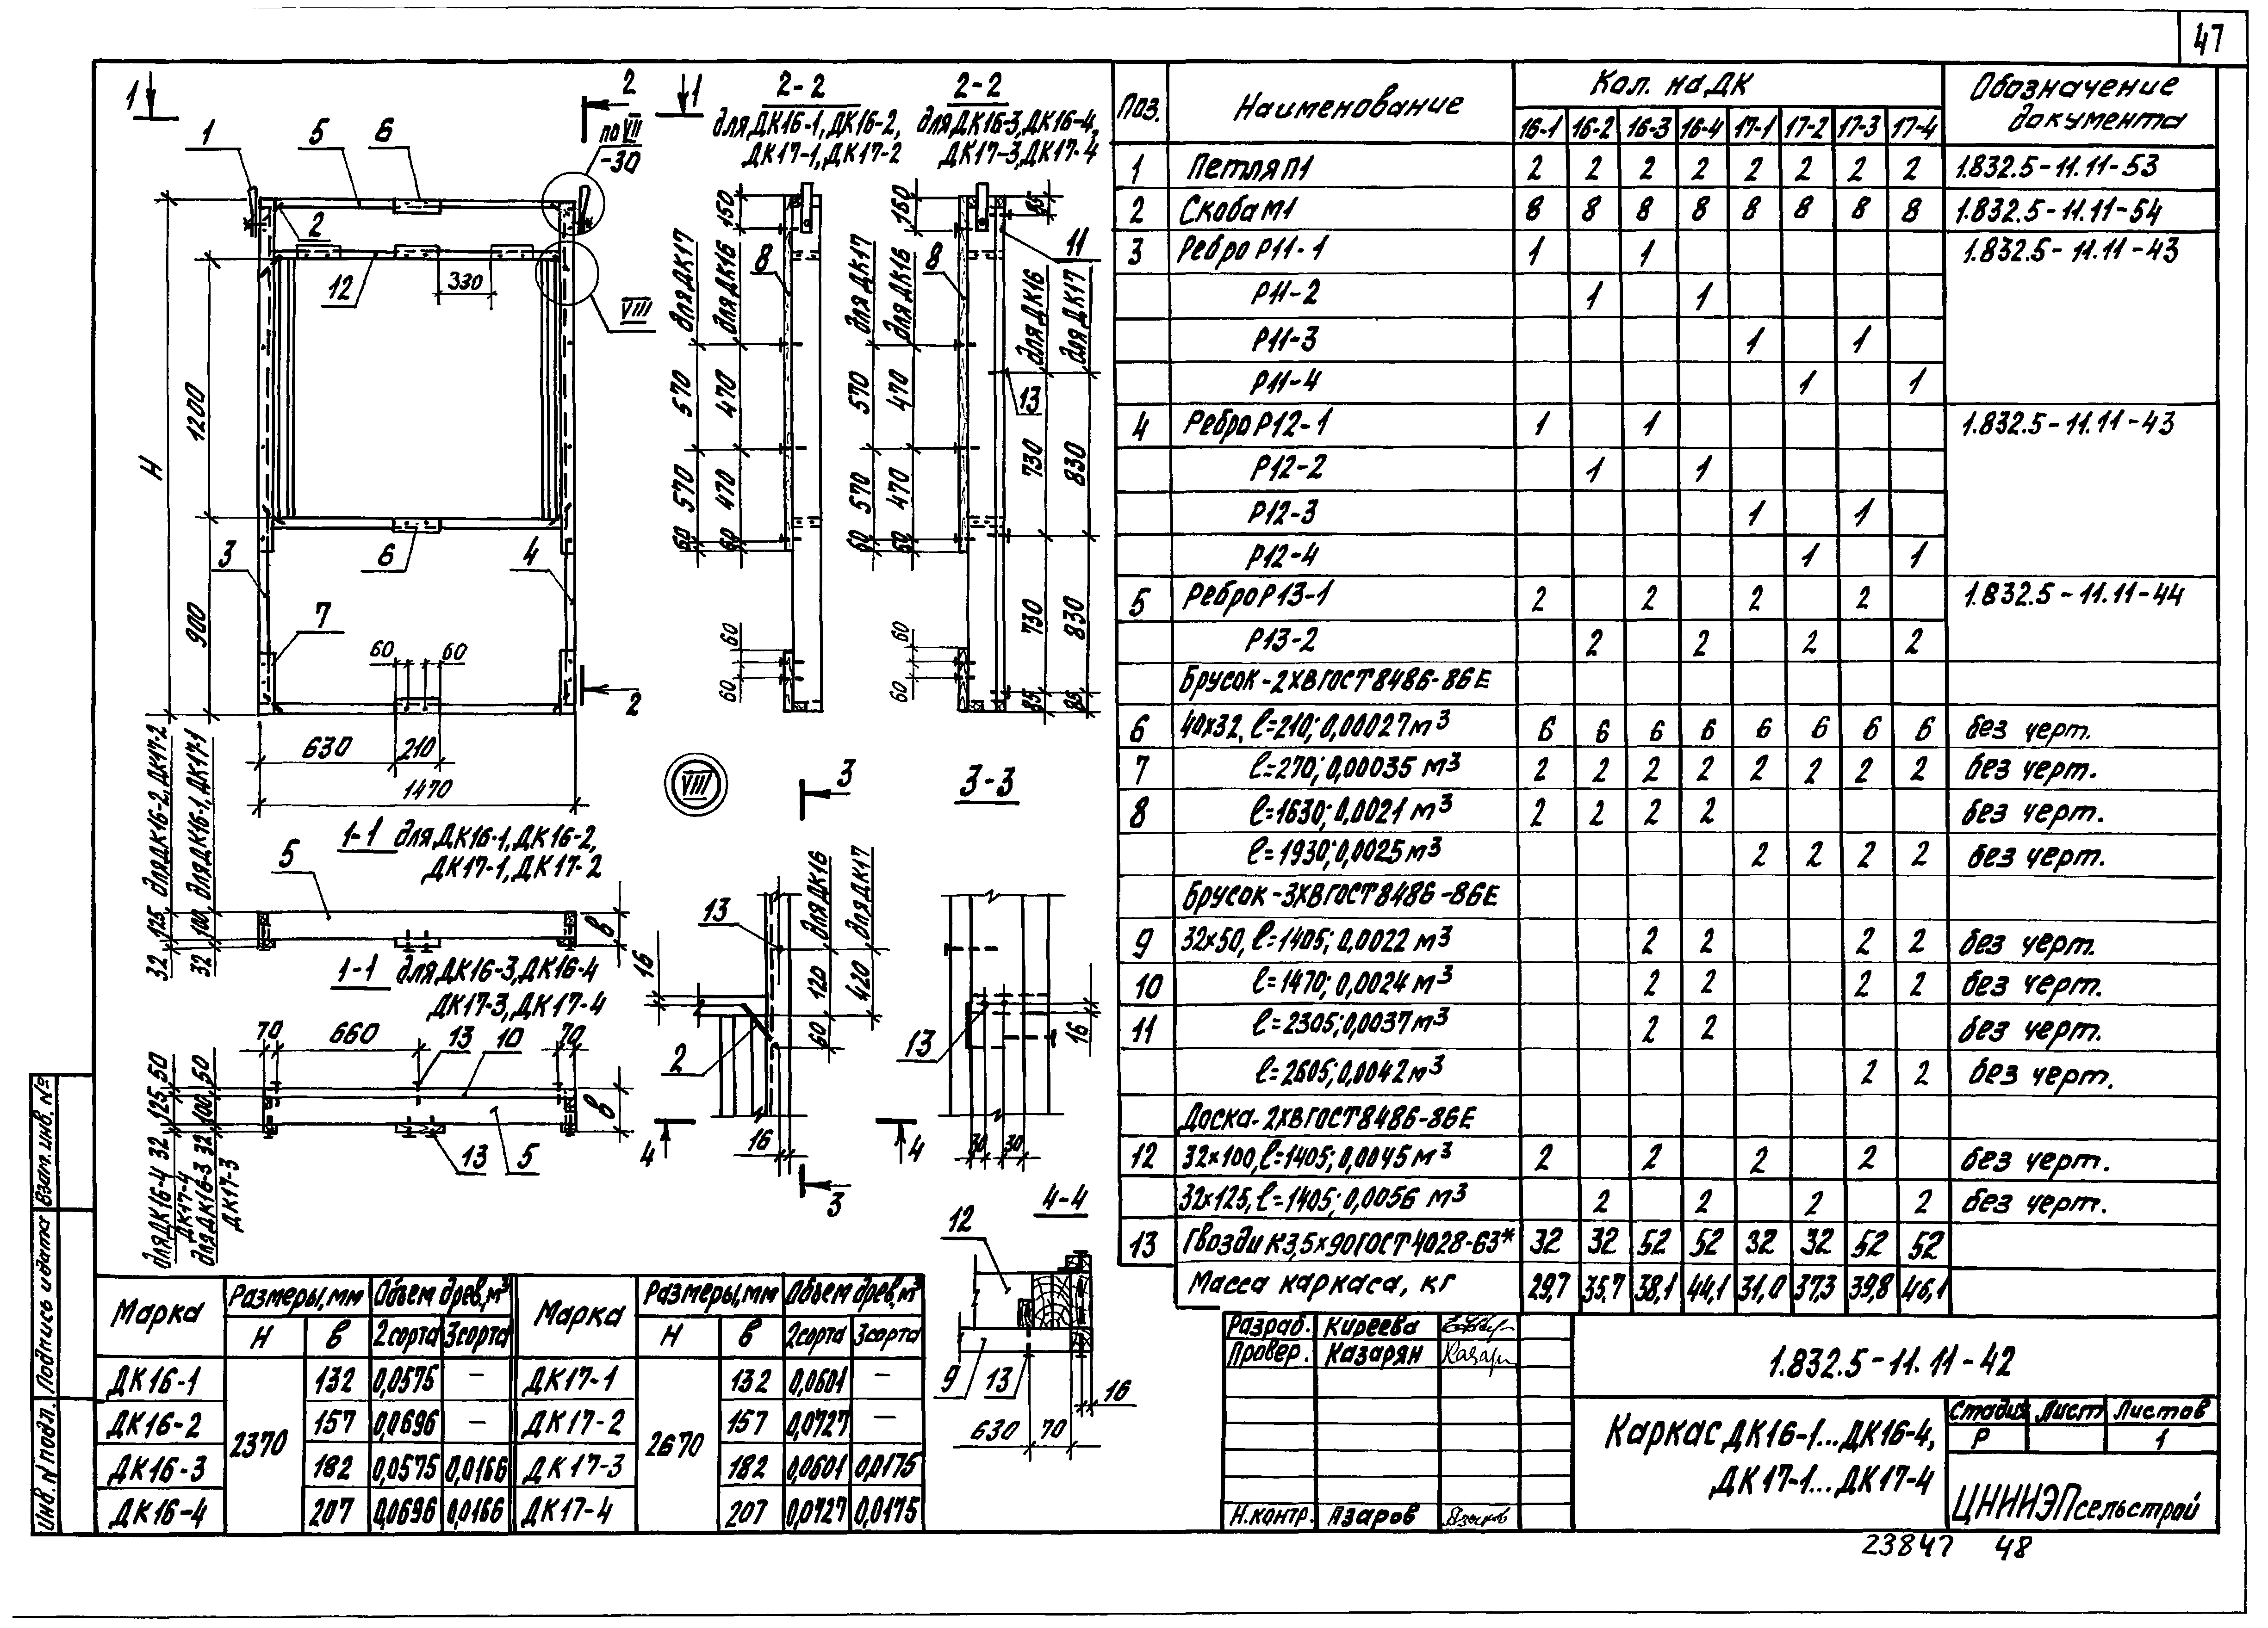 47
1
2
1
1
5
6
по VII
-30
2
12
330
VIII
1200
H
3
6
4
900
7
60
60
2
630
210
1470
2-2
для ДК16-1, ДК16-2,
ДК17-1, ДК17-2
150
для ДК17
для ДК16
8
570
470
570
470
60
60
60
60
2-2
для ДК16-3, ДК16-4,
ДК17-3, ДК17-4
160
85
11
для ДК17
для ДК16
8
для ДК16
для ДК17
13
570
470
730
830
570
470
60
60
730
830
60
60
85
85
1-1 для ДК16-1, ДК16-2,
ДК17-1, ДК17-2
для ДК16-2, ДК17-2
для ДК16-1, ДК17-1
5
125
100
32
32
в
1-1 для ДК16-3, ДК16-4
ДК17-3, ДК17-4
70
660
13
10
70
50
50
125
100
32
32
в
для ДК16-4
ДК17-4
для ДК16-3
ДК17-3
13
5
VIII
3
13
для ДК16
для ДК17
16
120
420
60
2
4
16
3
3-3
13
16
4
30
30
4-4
12
9
13
16
630
70
Поз.
Наименование
Кол. на ДК
Обозначение документа
16-1 16-2 16-3 16-4 17-1 17-2 17-3 17-4
1 Петля П1 2 2 2 2 2 2 2 2 1.832.5-11.11-53
2 Скоба М1 8 8 8 8 8 8 8 8 1.832.5-11.11-54
3 Ребро Р11-1 1 1 1.832.5-11.11-43
Р11-2 1 1
Р11-3 1 1
Р11-4 1 1
4 Ребро Р12-1 1 1 1.832.5-11.11-43
Р12-2 1 1
Р12-3 1 1
Р12-4 1 1
5 Ребро Р13-1 2 2 2 2 1.832.5-11.11-44
Р13-2 2 2 2 2
Брусок-2ХВ ГОСТ 8486-86Е
6 40х32, ℓ=210; 0,00027 м³ 6 6 6 6 6 6 6 6 без черт.
7 ℓ=270; 0,00035 м³ 2 2 2 2 2 2 2 2 без черт.
8 ℓ=1630; 0,0021 м³ 2 2 2 2 без черт.
ℓ=1930; 0,0025 м³ 2 2 2 2 без черт.
Брусок-3ХВ ГОСТ 8486-86Е
9 32х50, ℓ=1405; 0,0022 м³ 2 2 2 2 без черт.
10 ℓ=1470; 0,0024 м³ 2 2 2 2 без черт.
11 ℓ=2305; 0,0037 м³ 2 2 без черт.
ℓ=2605; 0,0042 м³ 2 2 без черт.
Доска-2ХВ ГОСТ 8486-86Е
12 32х100, ℓ=1405; 0,0045 м³ 2 2 2 2 без черт.
32х125, ℓ=1405; 0,0056 м³ 2 2 2 2 без черт.
13 Гвозди К3,5х90 ГОСТ 4028-63* 32 32 52 52 32 32 52 52
Масса каркаса, кг 29,7 35,7 38,1 44,1 31,0 37,3 39,8 46,1
Марка Размеры, мм Объем древ, м³ Марка Размеры, мм Объем древ, м³
H в 2 сорта 3 сорта H в 2 сорта 3 сорта
ДК16-1 2370 132 0,0575 — ДК17-1 2670 132 0,0601 —
ДК16-2 157 0,0696 — ДК17-2 157 0,0727 —
ДК16-3 182 0,0575 0,0166 ДК17-3 182 0,0601 0,0175
ДК16-4 207 0,0696 0,0166 ДК17-4 207 0,0727 0,0175
Разраб. Киреева
Провер. Казарян Казарян
Н.контр. Азаров Азаров
1.832.5-11.11-42
Каркас ДК16-1...ДК16-4,
ДК17-1...ДК17-4
Стадия Лист Листов
Р 1
ЦНИИЭПсельстрой
23847 48
Взам. инв. №
Подпись и дата
Инв. N подл.